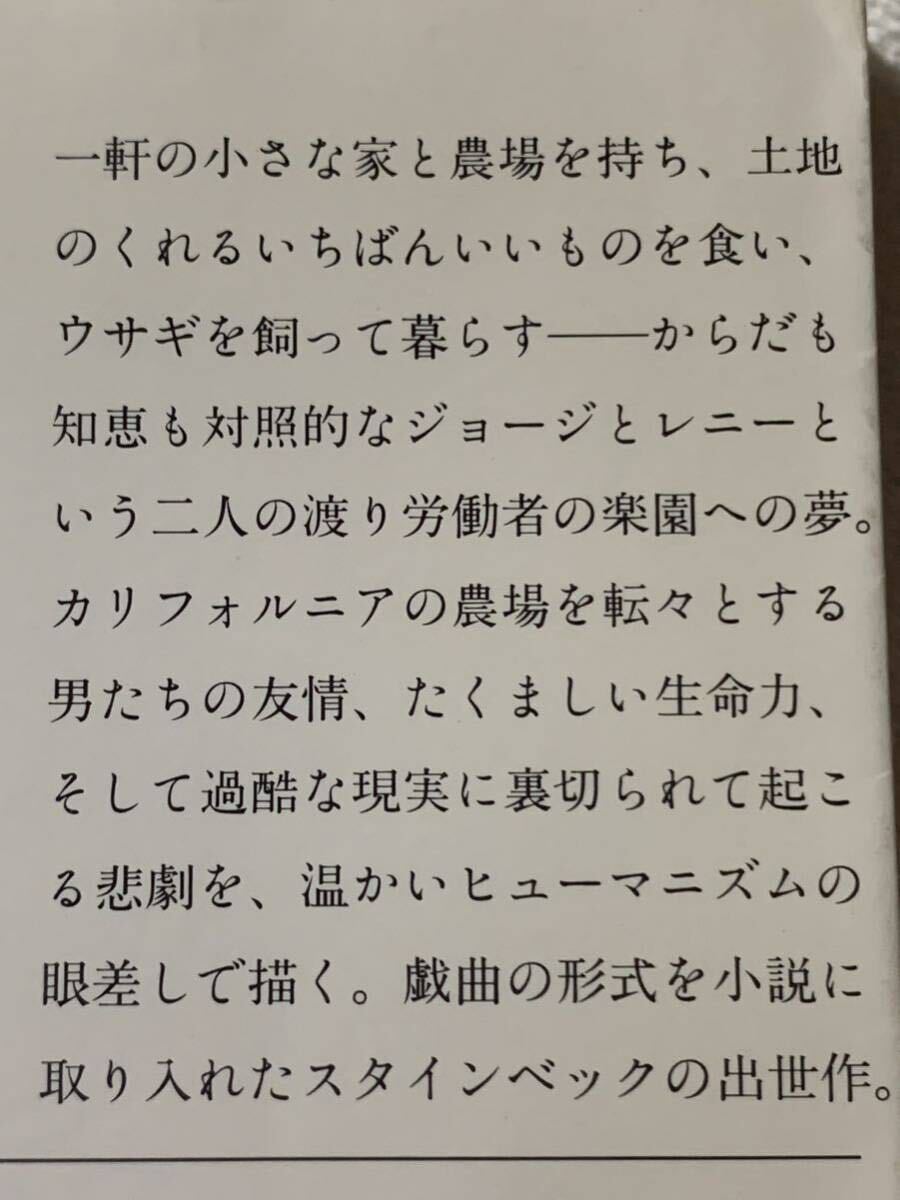 一軒の小さな家と農場を持ち、土地
のくれるいちばんいいものを食い、
ウサギを飼って暮らす――からだも
知恵も対照的なジョージとレニーと
いう二人の渡り労働者の楽園への夢。
カリフォルニアの農場を転々とする
男たちの友情、たくましい生命力、
そして過酷な現実に裏切られて起こ
る悲劇を、温かいヒューマニズムの
眼差しで描く。戯曲の形式を小説に
取り入れたスタインベックの出世作。